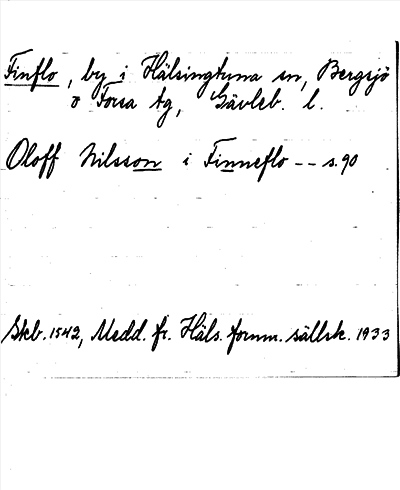 Finflo, by i Hälsingtuna sn, Bergsjö
o Forsa tg, Gävleb. l.
Oloff Nilsson i Finneflo -- s. 90
Skb. 1542, Medd. fr. Häls. fornm. sällsk. 1933